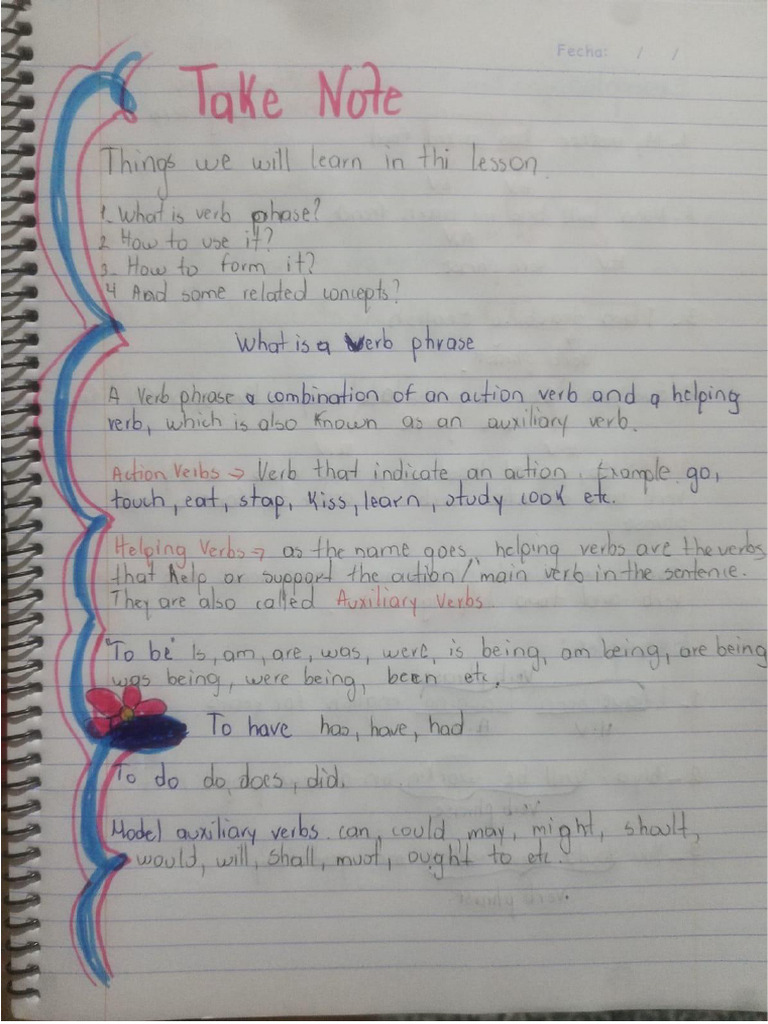 Fecha: / /
Take Note
Things we will learn in thi lesson.
1. What is verb phase?
2. How to use it?
3. How to form it?
4 And some related concepts?
What is a verb phrase
A verb phrase a combination of an action verb and a helping
verb, which is also known as an auxiliary verb.
Action Verbs → Verb that indicate an action. Example go,
touch, eat, stap, kiss, learn, study cook etc.
Helping Verbs → as the name goes, helping verbs are the verbs
that help or support the action/main verb in the sentence.
They are also called Auxiliary Verbs.
"To be" Is, am, are, was, were, is being, am being, are being
was being, were being, been etc.
To have has, have, had
To do do, does, did.
Model auxiliary verbs. can, could, may, might, shault,
would, will, shall, must, ought to etc.